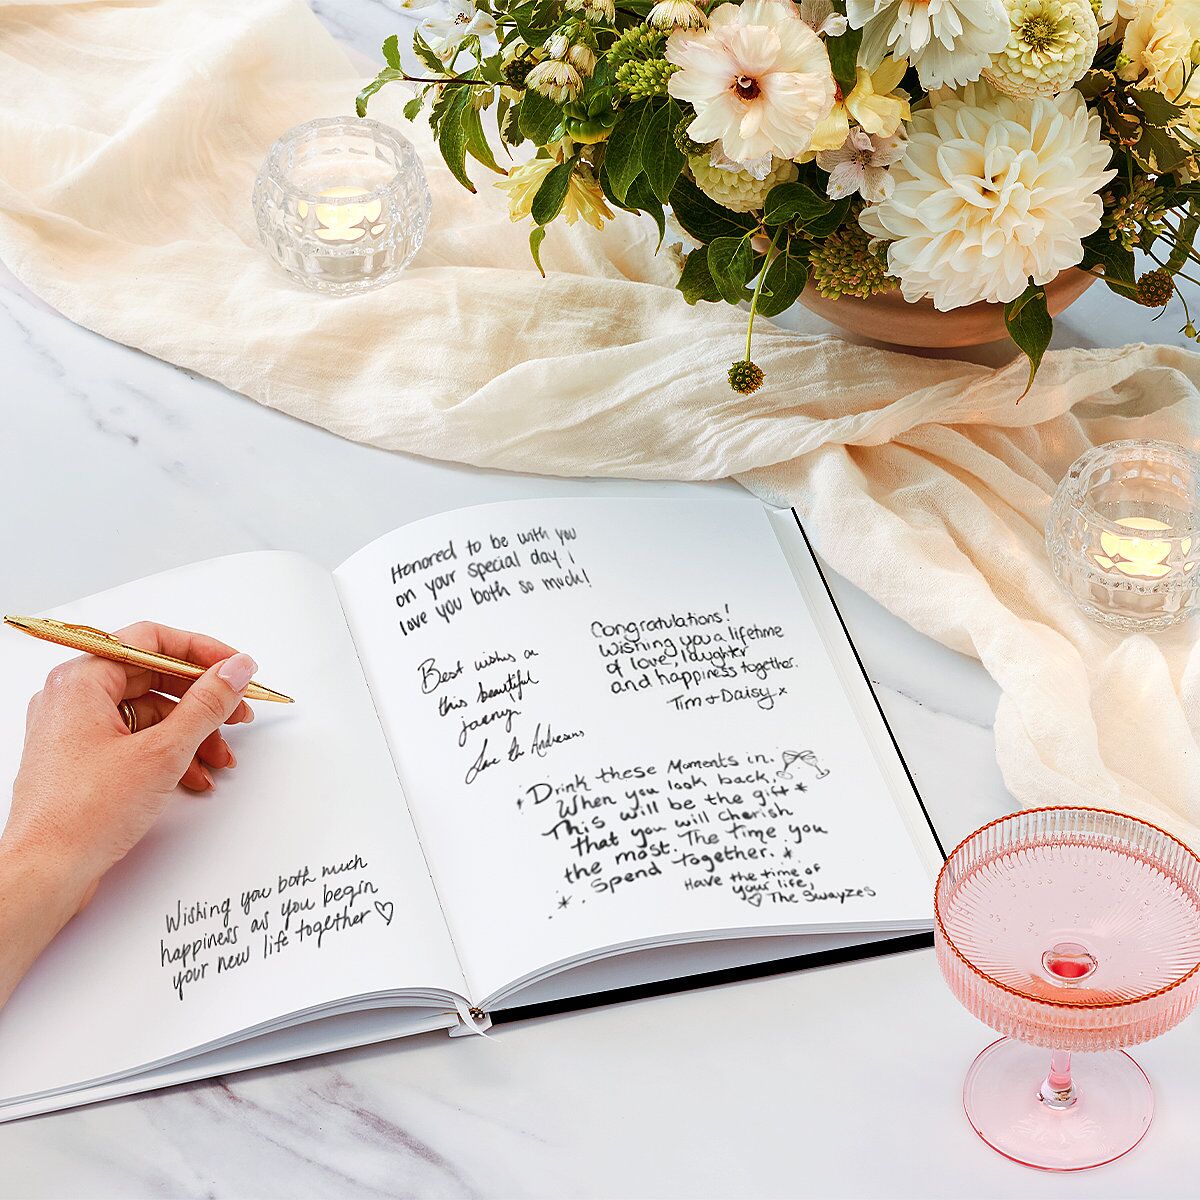 Wishing you both much
happiness as you begin
your new life together ♡
Honored to be with you
on your special day I
love you both so much!
Best wishes on
this beautiful
journey
Love the Andersens
Congratulations!
Wishing you a lifetime
of love, laughter
and happiness together.
Tim + Daisy x
Drink these Moments in.
When you look back,
This will be the gift *
that you will cherish
the most. The time you
spend together.
Have the time of
your life,
♡ The Swayzes